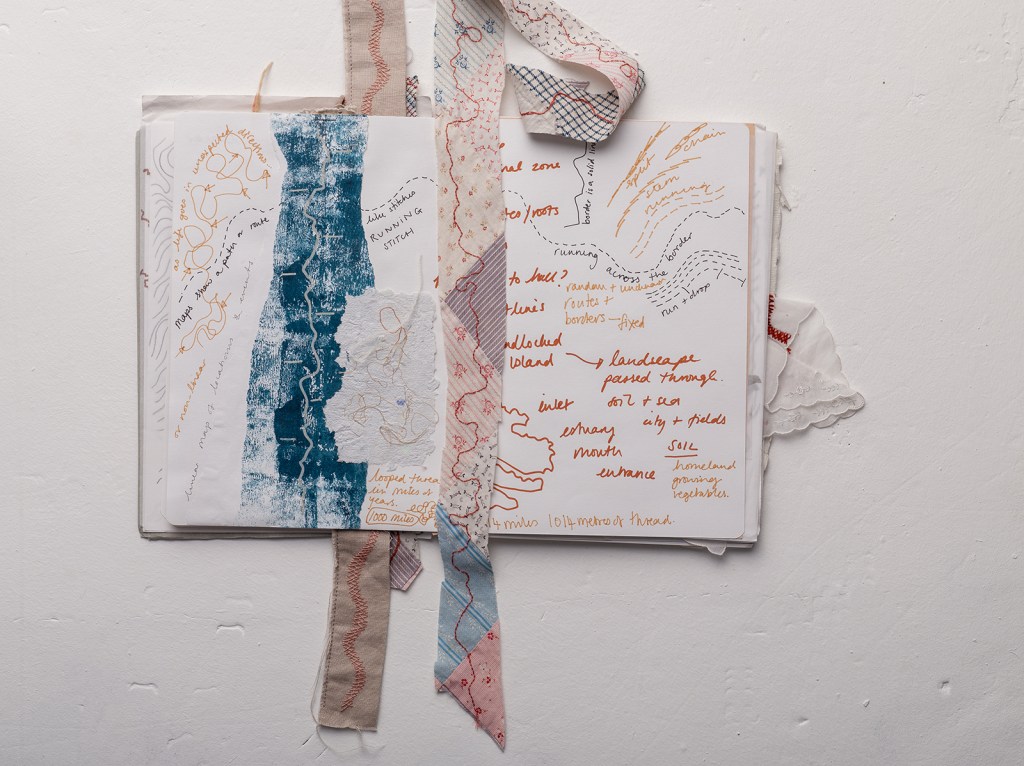 as life goes in unexpected directions
maps show a path or route
or non-linear
linear map of locations + events
like stitches
RUNNING
STITCH
looped thread
in miles of
years.
1000 miles
nal zone
/roots
border is a solid line
split chain
stem
running
running across the border
run + drop
to hull?
random +
routes +
borders – fixed
tlines
ndlocked
island
landscape
passed through.
soil + sea
city + fields
inlet
estuary
mouth
entrance
SOIL
homeland
growing
vegetables.
4 miles 1014 metres of thread.